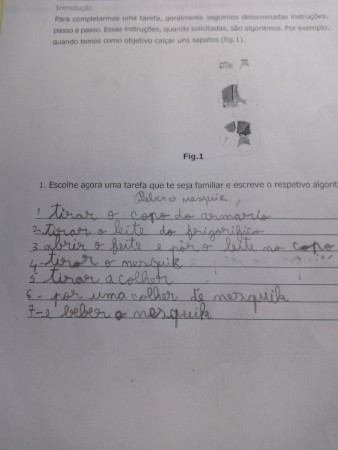 Introdução
Para completarmos uma tarefa, geralmente seguimos determinadas instruções,
passo a passo. Essas instruções, quando solicitadas, são algoritmos. Por exemplo,
quando temos como objetivo calçar uns sapatos (fig.1).
Fig.1
1. Escolhe agora uma tarefa que te seja familiar e escreve o respetivo algorit
Beber o nesquik
1 tirar o copo do armario
2-tirar o leite do frigorifico
3 abrir o leite e pôr o leite no copo
4-tirar o nesquik
5 tirar a colher
6-por uma colher de nesquik
7-e beber o nesquik